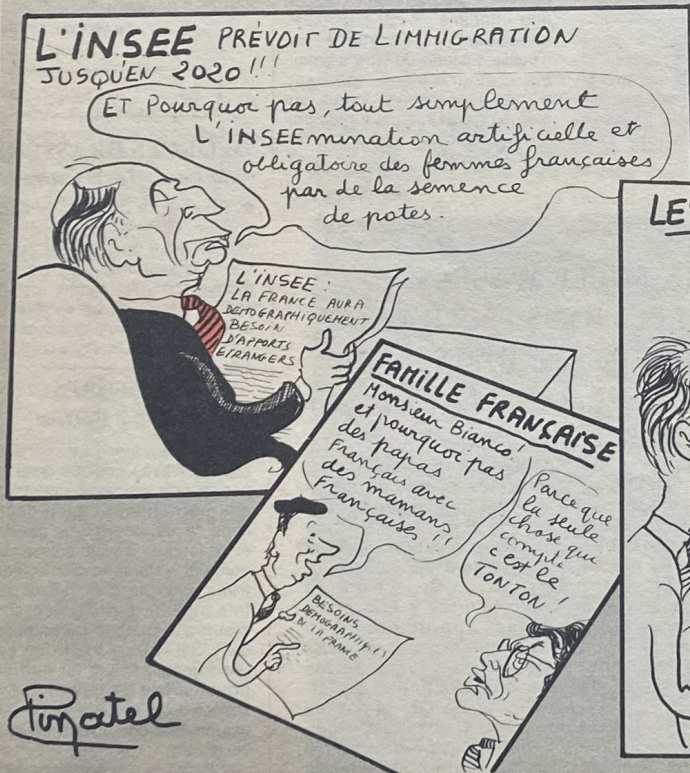 L'INSEE PRÉVOIT DE L'IMMIGRATION
JUSQU'EN 2020 !!!
ET Pourquoi pas, tout simplement
L'INSEEmination artificielle et
obligatoire des femmes françaises
par de la semence
de potes.
L'INSEE :
LA FRANCE AURA
DEMOGRAPHIQUEMENT
BESOIN
D'APPORTS
ETRANGERS
FAMILLE FRANÇAISE
Monsieur Bianco !
et pourquoi pas
des papas
Français avec
des mamans
Françaises !!
Parce que
la seule
chose qui
compte
c'est le
TONTON !
BESOINS
DEMOGRAPHIQUES
DE LA FRANCE
LE
Pinatel